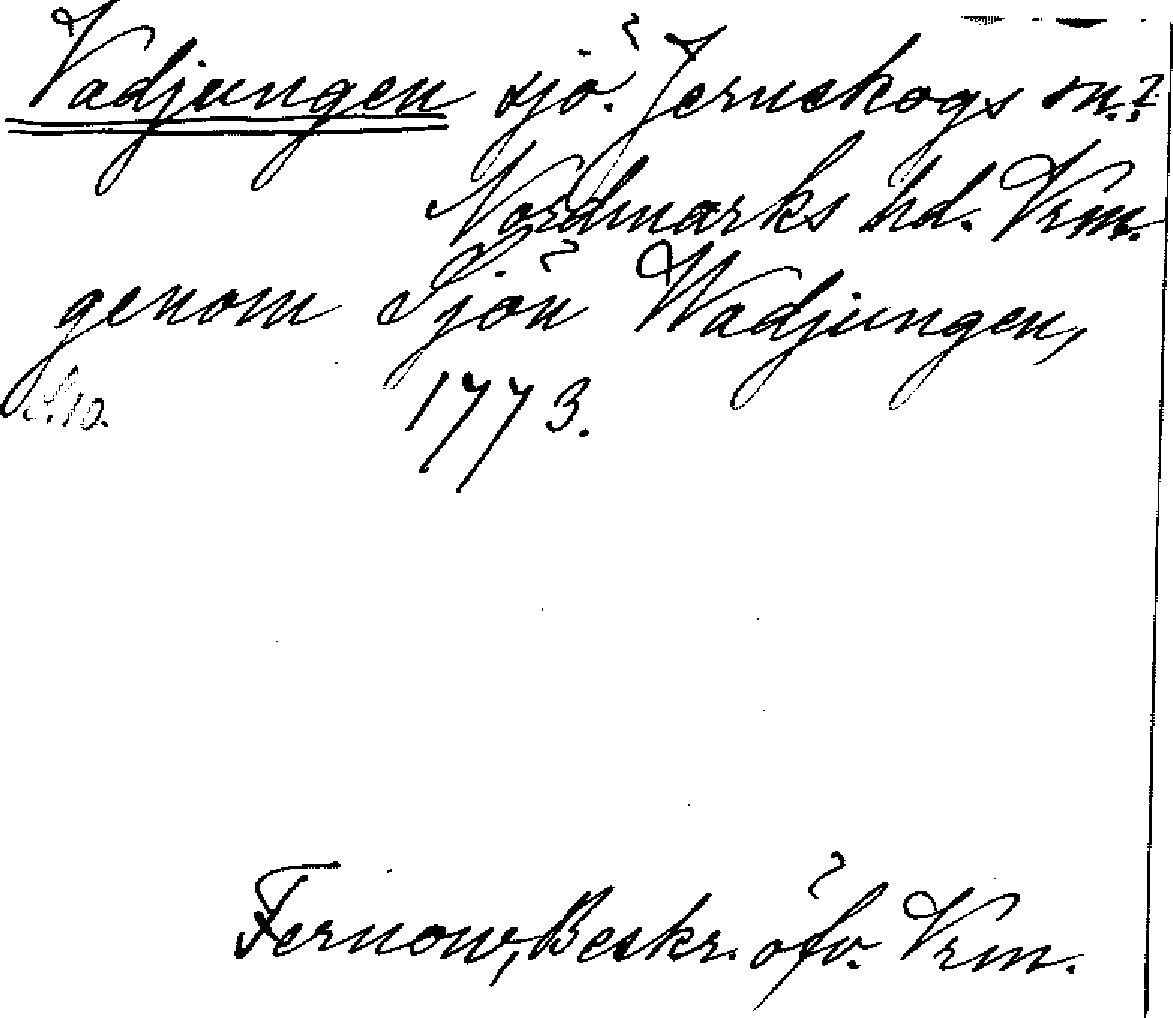 Vadjungen sjö. Jernskogs sn.?
Nordmarks hd. Vrm.
genom Sjön Wadjungen,
S. 10. 1773.
Fernow, Beskr. öfv. Vrm.